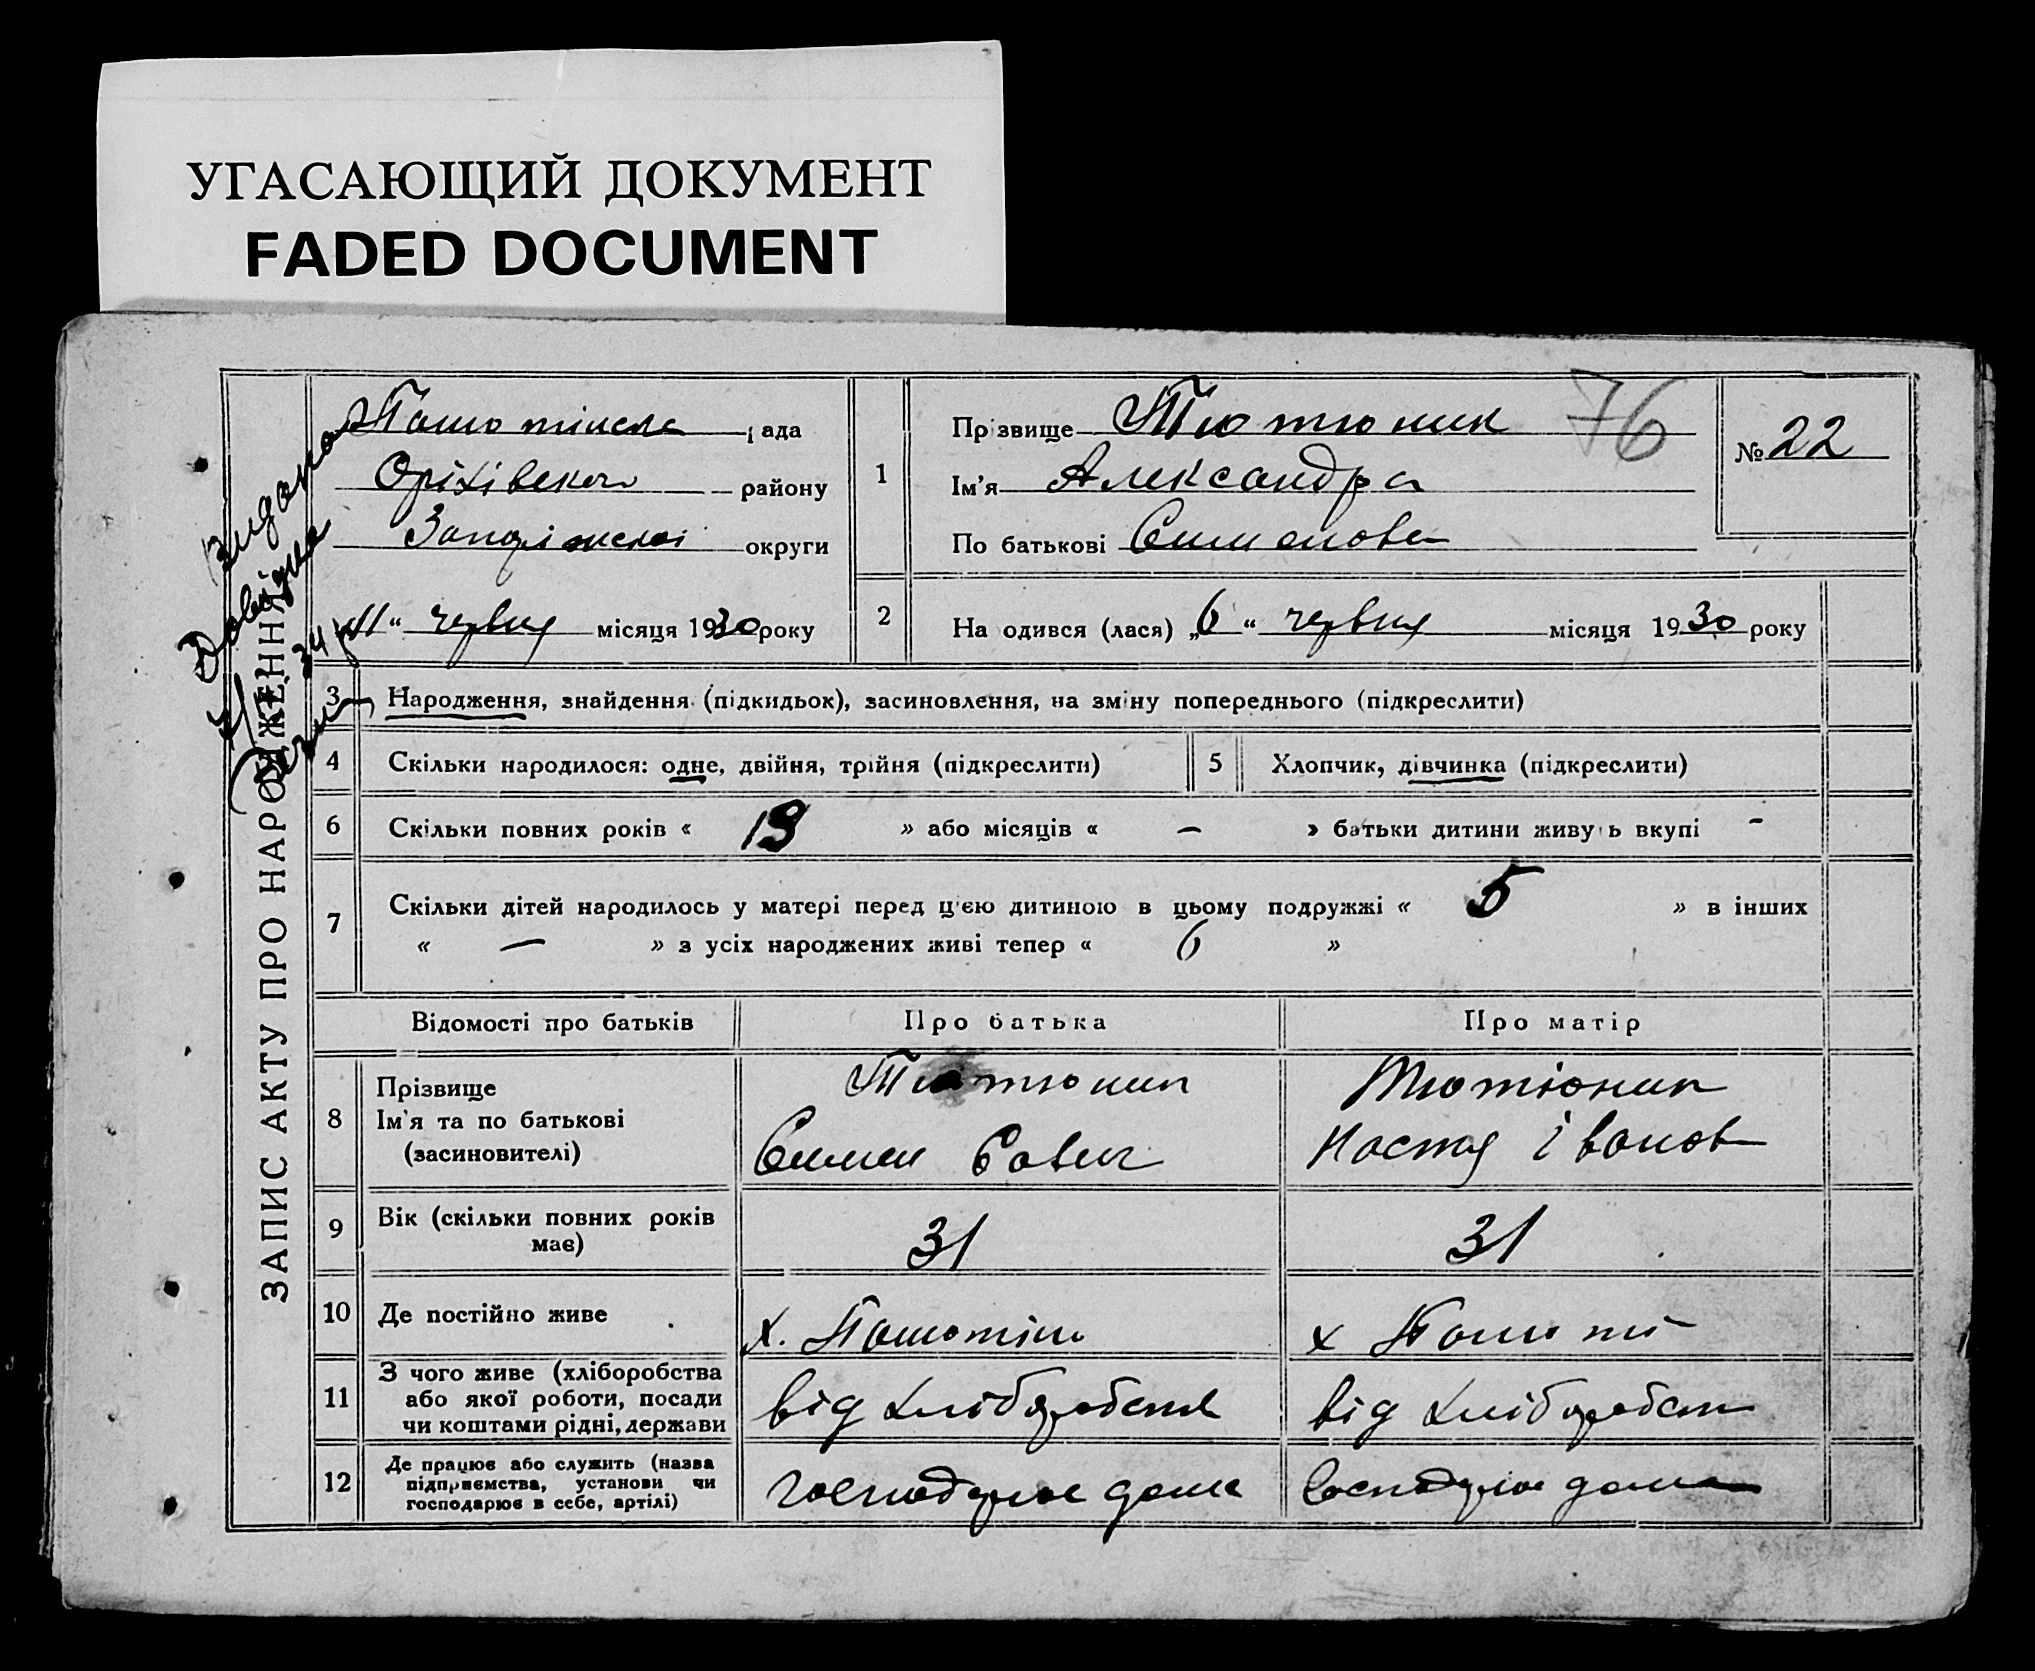 УГАСАЮЩИЙ ДОКУМЕНТ
FADED DOCUMENT
ЗАПИС АКТУ ПРО НАРОДЖЕННЯ
Видано
Довідка
рада
Оріхівского району
Запоріжскої округи
"11" червня місяця 1930 року
1
Прізвище Тютюник
76
Ім'я Александра
По батькові Симонова
№ 22
2
На одився (лася) „6“ червня місяця 1930 року
3 Народження, знайдення (підкидьок), засиновлення, на зміну попереднього (підкреслити)
4 Скільки народилося: одне, двійня, трійня (підкреслити)
5 Хлопчик, дівчинка (підкреслити)
6 Скільки повних років « 13 » або місяців « – » батьки дитини живуть вкупі -
7 Скільки дітей народилось у матері перед ц'єю дитиною в цьому подружжі « 5 » в інших
« — » з усіх народжених живі тепер « 6 »
Відомості про батьків Про батька Про матір
8 Прізвище
Ім'я та по батькові
(засиновителі)
Тютюник
Симон Савич
Тютюник
Настя Іванов
9 Вік (скільки повних років
має)
31 31
10 Де постійно живе
х.
х
11 З чого живе (хліборобства
або якої роботи, посади
чи коштами рідні, держави
від хліборобства
від хліборобст
12 Де працює або служить (назва
підприємства, установи чи
господарює в себе, артілі)
господарює дома
господарює дома